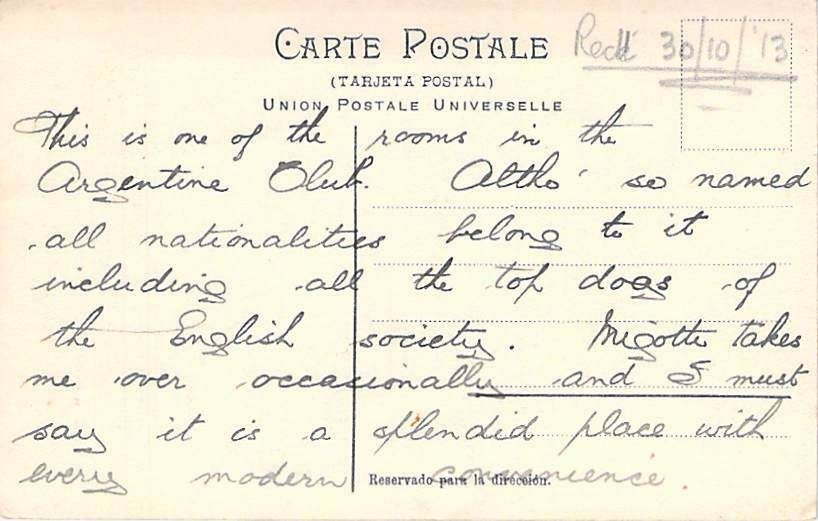 CARTE POSTALE
(TARJETA POSTAL)
UNION POSTALE UNIVERSELLE
Recd 30/10/'13
This is one of the rooms in the
Argentine Club. Altho' so named
all nationalities belong to it
including all the top dogs of
the English society. Migotti takes
me over occasionally and I must
say it is a splendid place with
every modern convenience.
Reservado para la dirección.